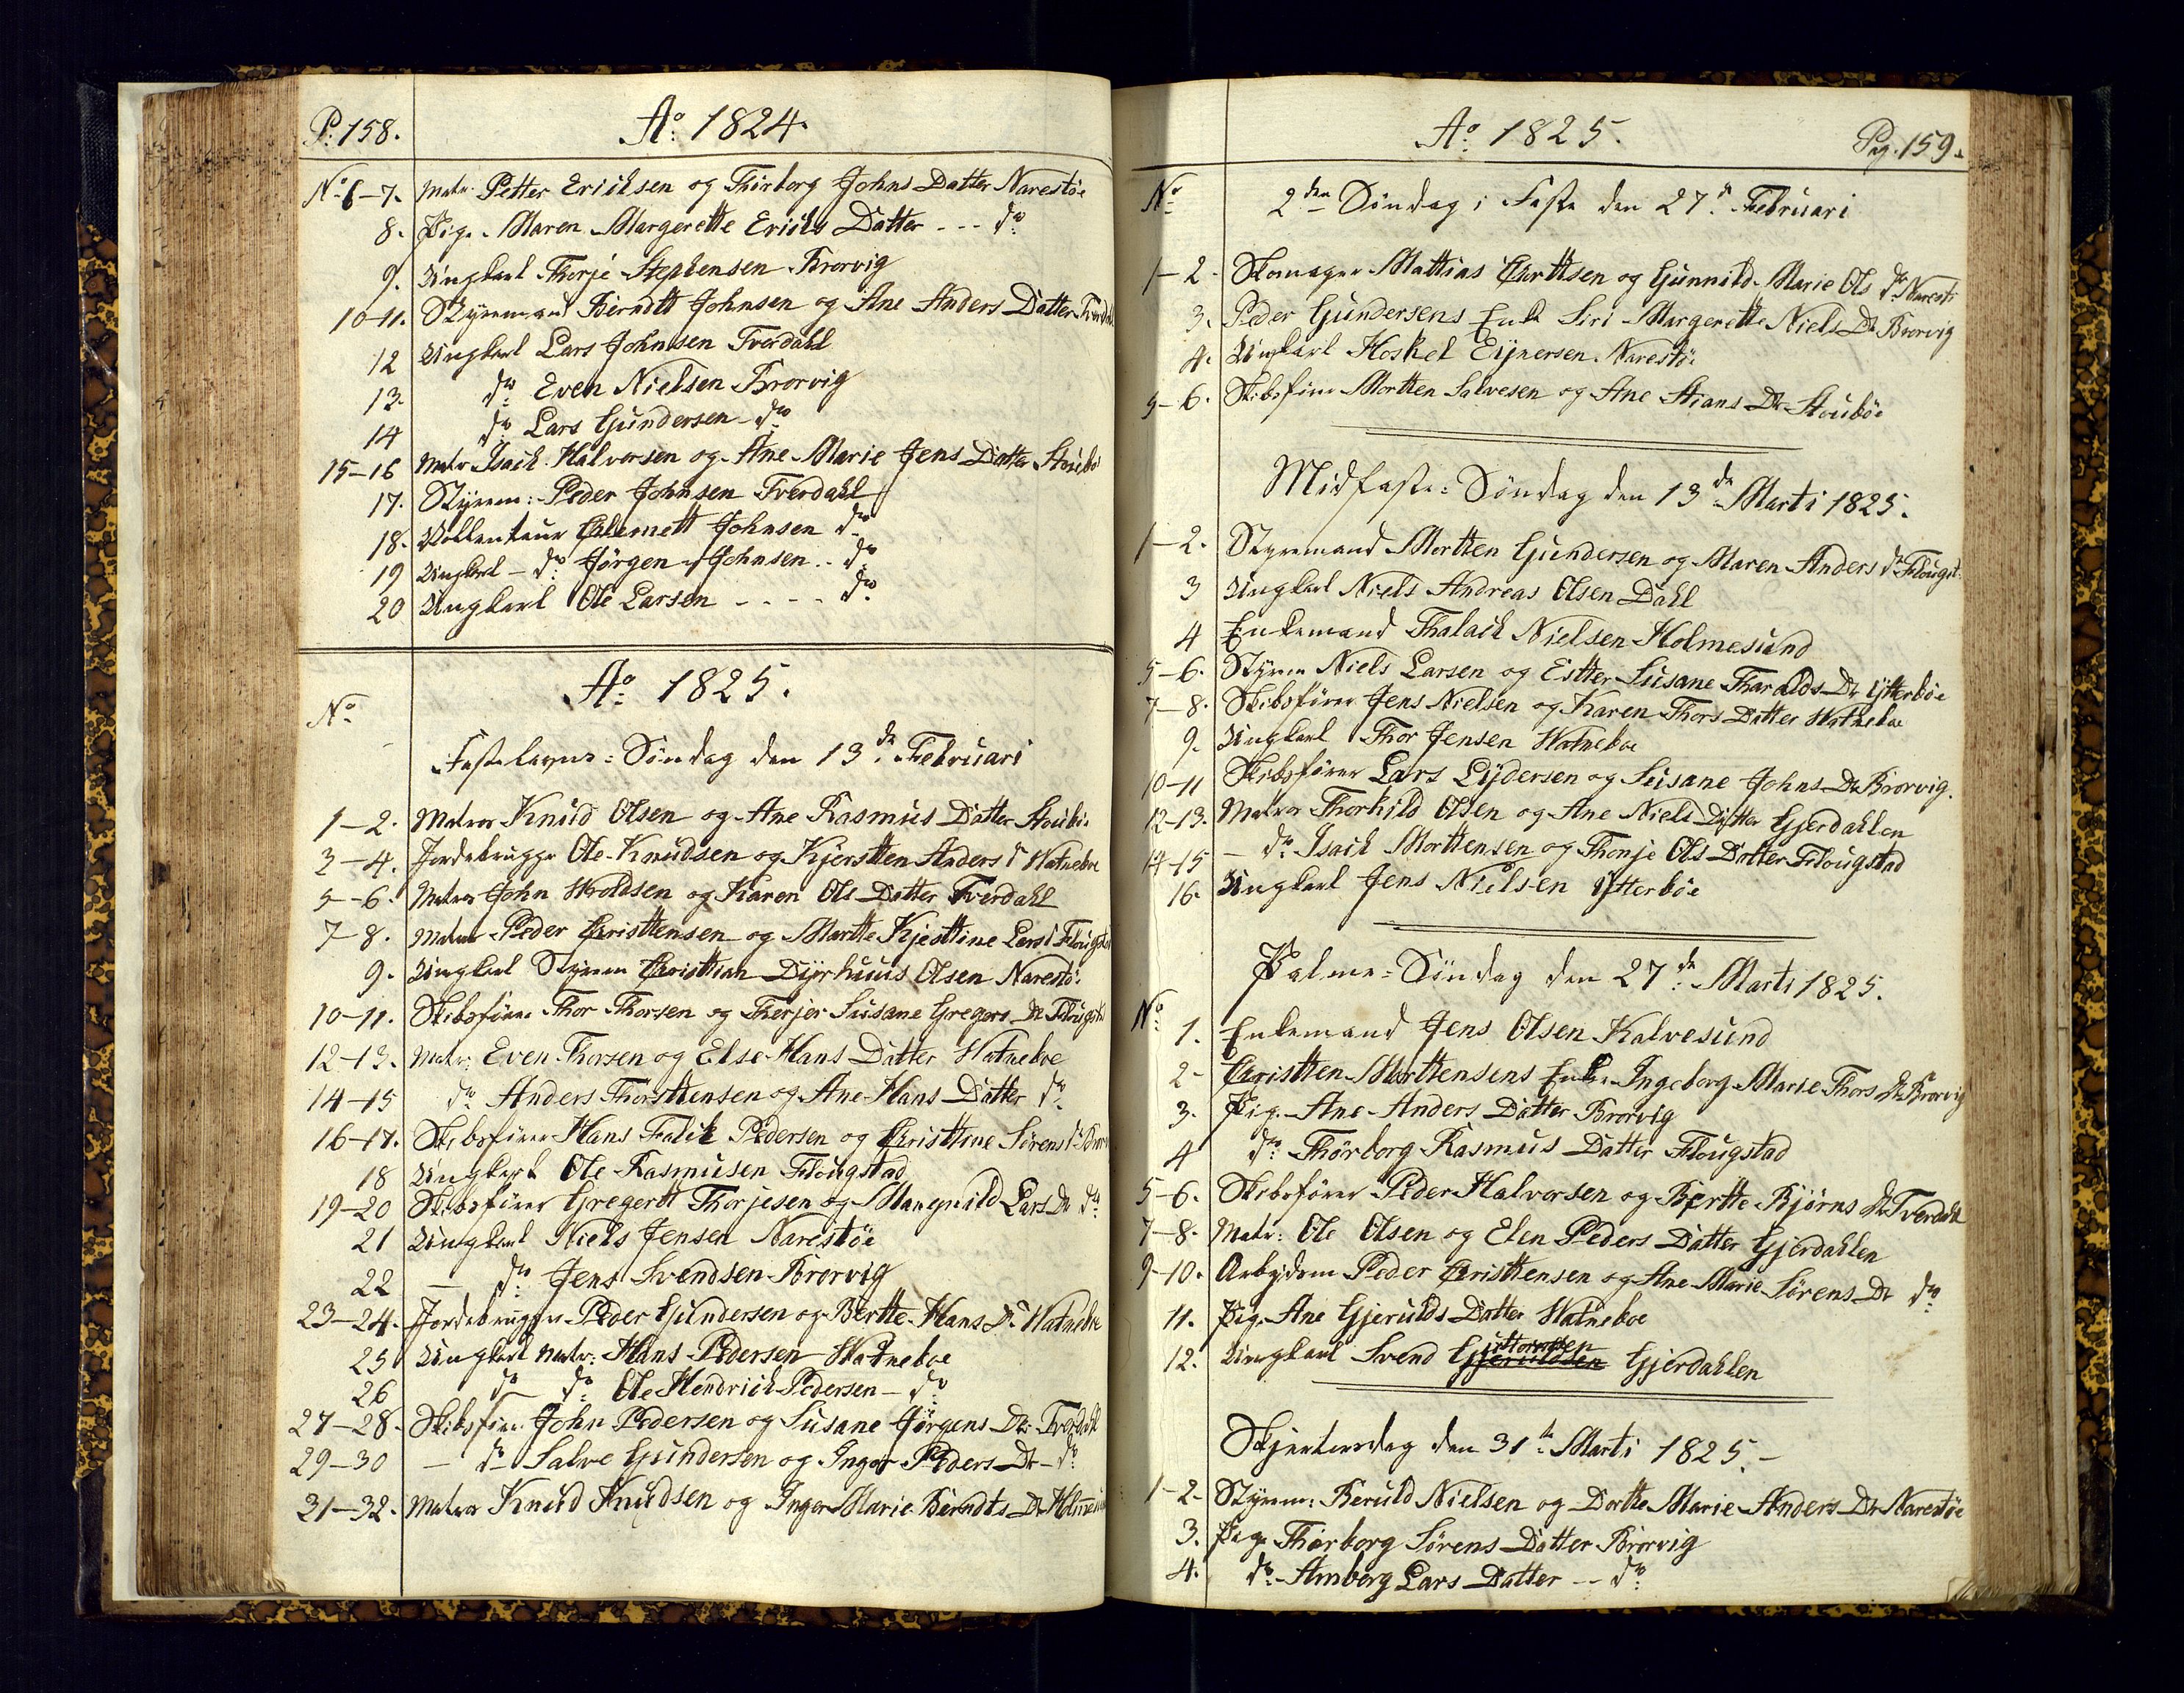 P. 158.
Ao 1824.
No 6-7. Matr. Petter Ericksen og Thorborg Johns Datter Narestøe
8. Pige Maren Margerette Ericks Datter --- do
9. Ungkarl Thorje Stephensen Brorvig
10-11. Styrmand Berndtt Johnsen og Ane Anders Datter
12 Ungkarl Lars Johnsen Tverdahl
13. do Even Nielsen Brorvig
14 do Lars Gundersen - do
15-16 Matr Isack Halvorsen og Ane Marie Jens Datter
17. Styrm: Peder Johnsen Tverdahl
18. Vollenteur Clemett Johnsen do
19 Ungkarl - do Jørgen Johnsen .. do
20 Ungkarl Ole Larsen - - - - do
Ao 1825.
No
Fastelavns=Søndag den 13de Februari
1-2. Matros Knud Olsen og Ane Rasmus Datter
3-4. Jordebrugger Ole Knudsen og Kjerstten Anders D Watneboe
5-6. Matros John Woldsen og Karen Ols Datter Tverdahl
7-8. Matros Peder Christtensen og Martte Kjesttine Lars D
9. Ungkarl Styrm Christtian Dyrhuus Olsen Narestø.
10-11. Skibsfører Thor Thorsen og Therjer Susane Gregers Dr
12-13. Matr: Even Thorsen og Else Hans Datter Watneboe
14-15 do Anders Thorsttensen og Ane Hans Datter do
16-17. Skibsfører Hans Falck Pedersen og Christtine Sørens D
18 Ungkarl Ole Rasmusen Flougstad
19-20 Skibsfører Gregertt Thorjesen og Mangnild Lars Dr do
21 Ungkarl Niels Jensen Narestøe
22 — do Jens Svendsen Brorvig
23-24. Jordebrugger Peder Gundersen og Bertte Hans D. Watneboe
25 Ungkarl Matr: Hans Pedersen Watneboe
26 do do Ole Hendrick Pedersen - do
27-28. Skibsfører John Pedersen og Susane Jørgens Dr. Tverdahl
29-30 - do Salve Gundersen og Inger Peders Dr - do
31-32. Matros Knud Knudsen og Inger Marie Berndts Dr
Ao 1825.
Pag. 159.
No
2den Søndag i Faste den 27de Februari
1-2. Skomager Mattias and Gunnild Marie Ols Dr
3. Peder Gundersens Enke Siri Margerette Niels Dr Brorvig
4. Ungkarl Hoskel Eynersen Narestø:
5-6. Skibsfører Mortten Salvesen og Ane Stians Dr Stoubøe
Midfaste=Søndag den 13de Marti 1825.
1-2. Styremand Mortten Gundersen og Maren Anders Dr Flougst.
3 Ungkarl Niels Andreas Olsen Dahl
4 Enkemand Thalack Nielsen Holmesund
5-6. Styrm Niels Larsen og Estter Susane Tharalds Dr Ytterbøe
7-8. Skibsfører Jens Nielsen og Karen Thors Datter Watneboe
9. Ungkarl Thor Jensen Watneboe
10-11 Skibsfører Lars Lydersen og Susane Johns Dr Brorvig.
12-13. Matros Thorkild Olsen og Ane Niels Datter Gjerdahlen
14-15 - do Isack Morttensen og Thonje Ols Datter Flougstad
16. Ungkarl Jens Nielsen Ytterbøe
Palme=Søndag den 27de Marti 1825.
No
1. Enkemand Jens Olsen Kalvesund
2- Christten Morttensens Enke Ingeborg Marie Thors Dr Brorvig
3. Pige Ane Anders Datter Brorvig
4 do Thorborg Rasmus Datter Flougstad
5-6. Skibsfører Peder Halvorsen og Bertte Bjørns Dr Tverdahl
7-8. Matr: Ole Olsen og Elen Peders Datter Gjerdahlen
9-10. Arbejdsm Peder Christtensen og Ane Marie Sørens Dr do
11. Pige Ane Gjerulds Datter Watneboe
12. Ungkarl Svend Gjeruldsen Guttormsen Gjerdahlen
Skjertorsdag den 31te Marti 1825.-
1-2. Styrm: Beruld Nielsen og Dortte Marie Anders Dr Narestøe
3. Pige Thorborg Sørens Datter Brorvig
4. do Amberg Lars Datter -- do